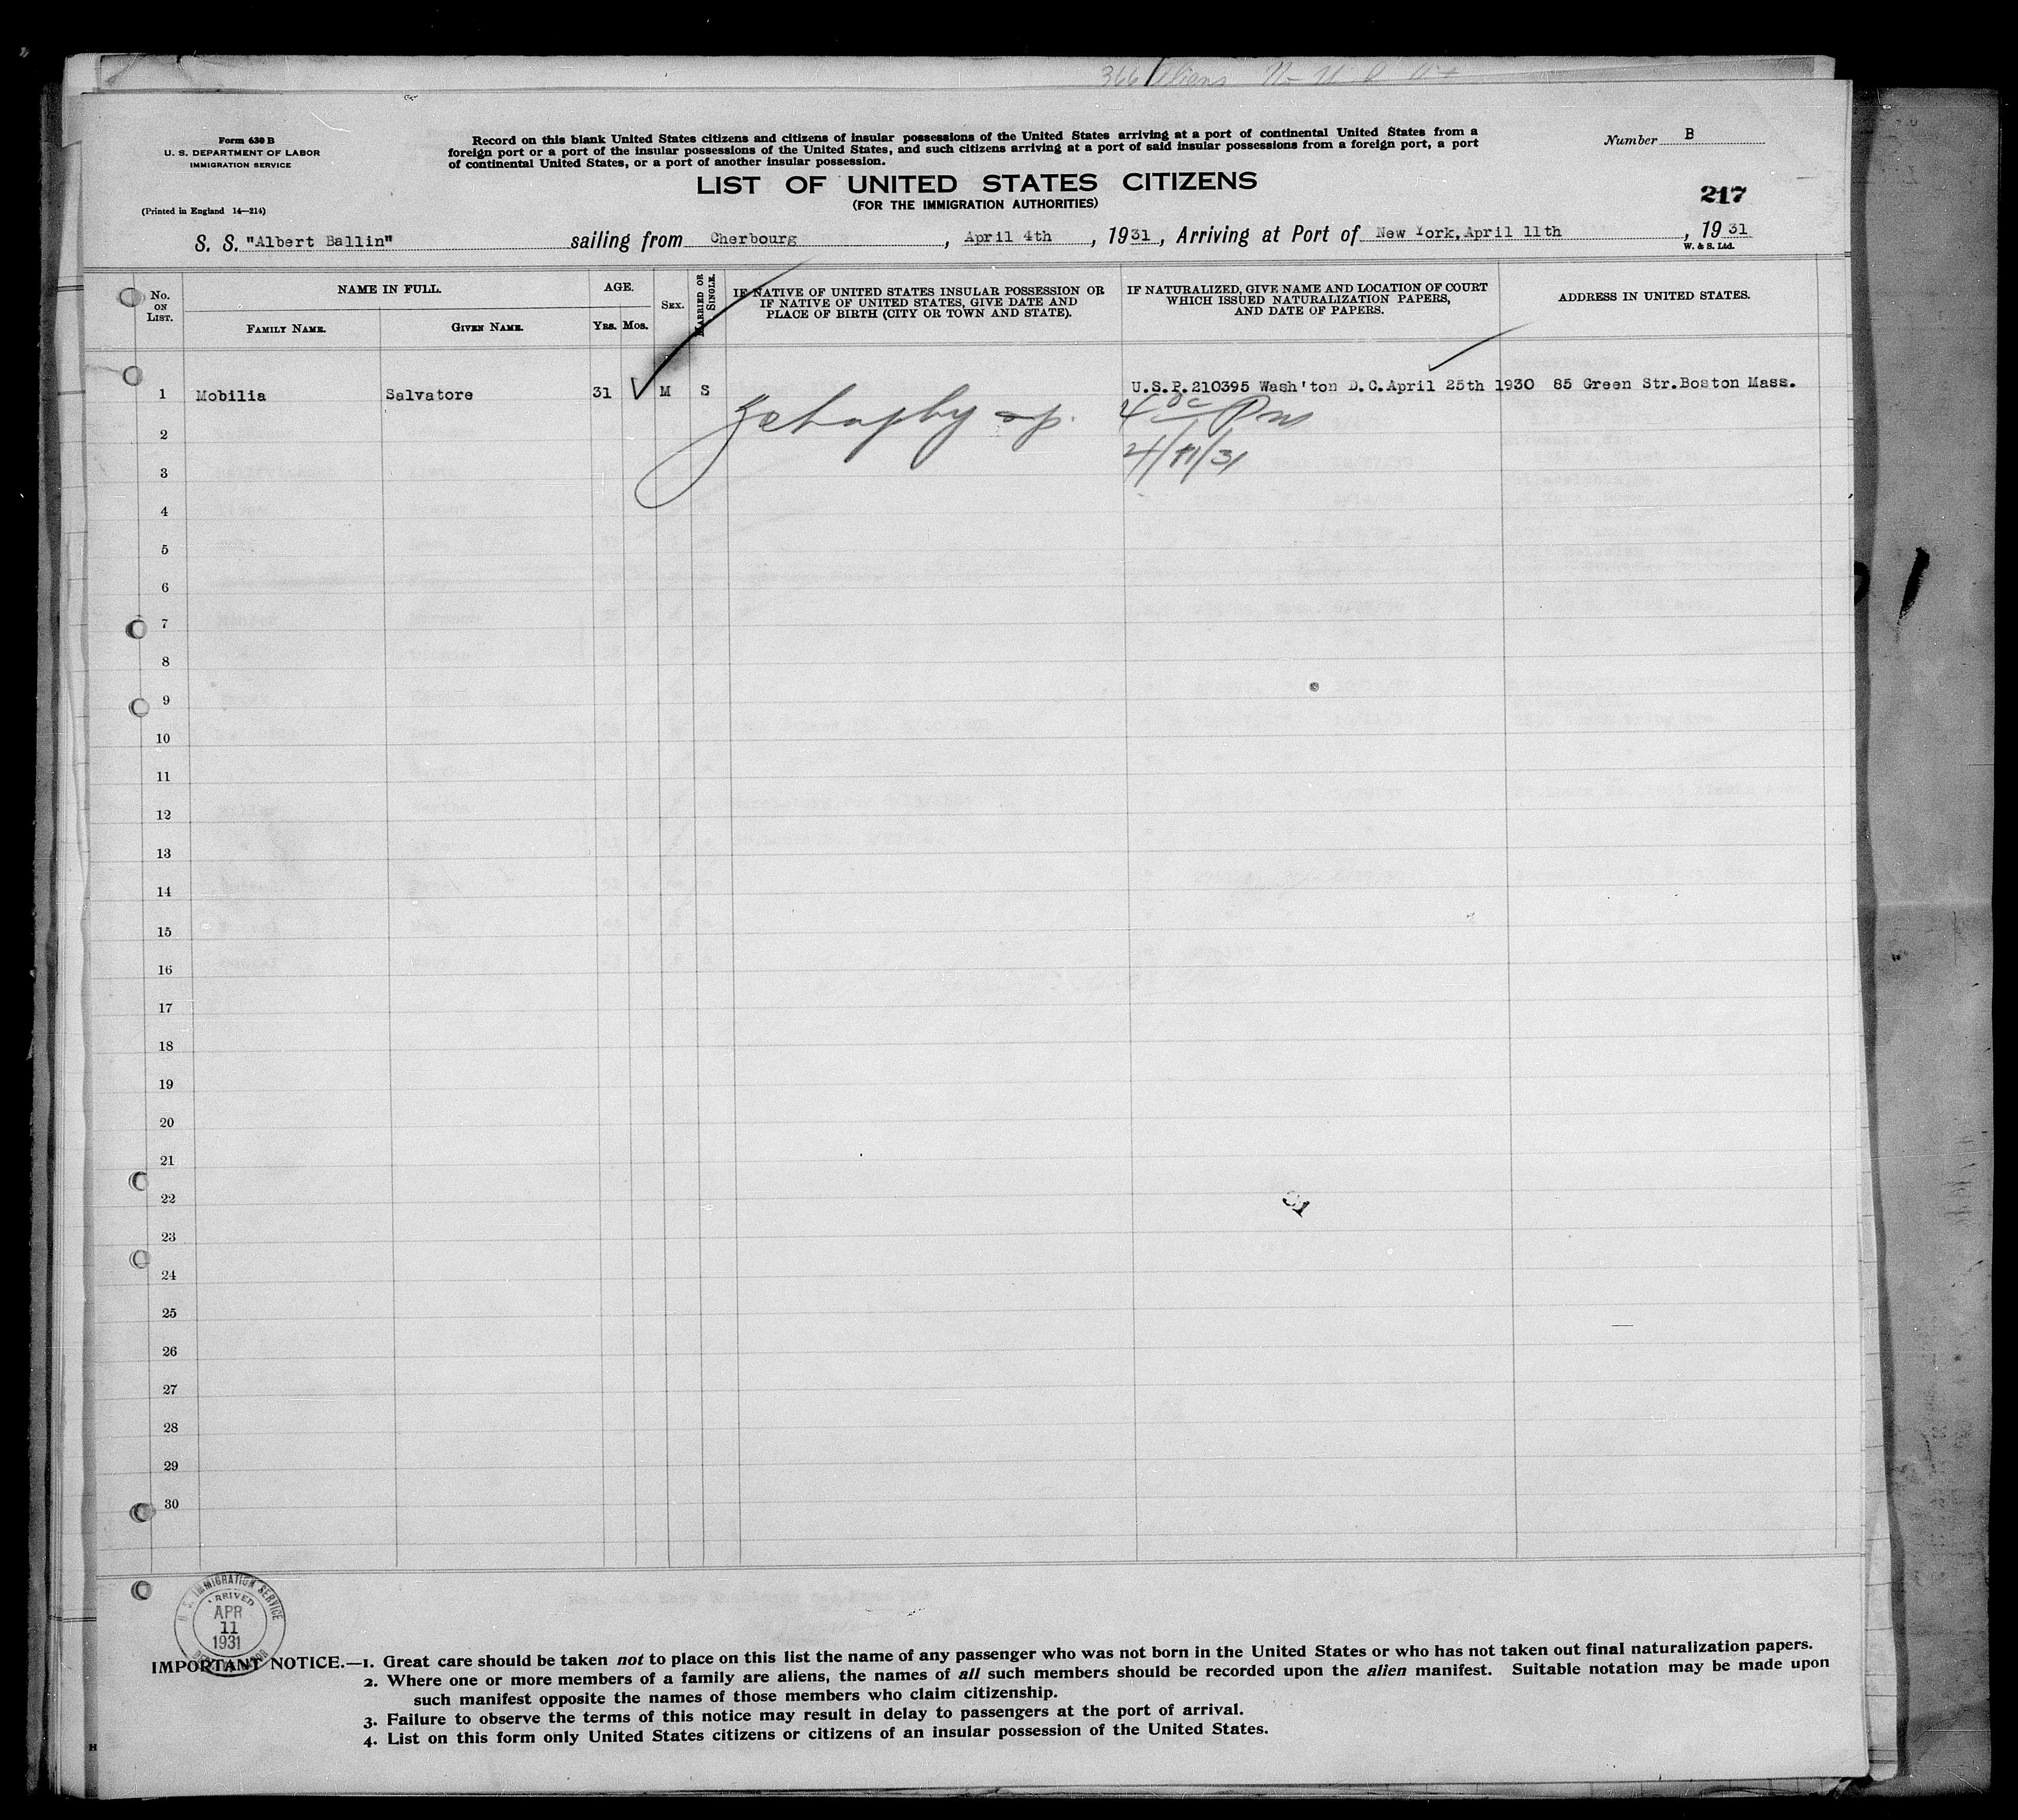 366 Aliens
Form 630 B
U. S. DEPARTMENT OF LABOR
IMMIGRATION SERVICE
(Printed in England 14—214)
Record on this blank United States citizens and citizens of insular possessions of the United States arriving at a port of continental United States from a
foreign port or a port of the insular possessions of the United States, and such citizens arriving at a port of said insular possessions from a foreign port, a port
of continental United States, or a port of another insular possession.
Number B
LIST OF UNITED STATES CITIZENS
(FOR THE IMMIGRATION AUTHORITIES)
217
S. S. "Albert Ballin" sailing from Cherbourg, April 4th, 1931, Arriving at Port of New York, April 11th, 1931
W. & S. Ltd.
No. ON LIST.
NAME IN FULL.
FAMILY NAME.
GIVEN NAME.
AGE.
YRS. MOS.
SEX.
MARRIED OR SINGLE.
IF NATIVE OF UNITED STATES INSULAR POSSESSION OR
IF NATIVE OF UNITED STATES, GIVE DATE AND
PLACE OF BIRTH (CITY OR TOWN AND STATE).
IF NATURALIZED, GIVE NAME AND LOCATION OF COURT
WHICH ISSUED NATURALIZATION PAPERS,
AND DATE OF PAPERS.
ADDRESS IN UNITED STATES.
1 Mobilia Salvatore 31 M S U.S.P. 210395 Wash'ton D.C. April 25th 1930 85 Green Str. Boston Mass.
2
4/11/31
3
4
5
6
7
8
9
10
11
12
13
14
15
16
17
18
19
20
21
22
23
24
25
26
27
28
29
30
U. S. IMMIGRATION SERVICE
ARRIVED
APR
11
1931
IMPORTANT NOTICE.—1. Great care should be taken not to place on this list the name of any passenger who was not born in the United States or who has not taken out final naturalization papers.
2. Where one or more members of a family are aliens, the names of all such members should be recorded upon the alien manifest. Suitable notation may be made upon
such manifest opposite the names of those members who claim citizenship.
3. Failure to observe the terms of this notice may result in delay to passengers at the port of arrival.
4. List on this form only United States citizens or citizens of an insular possession of the United States.
H